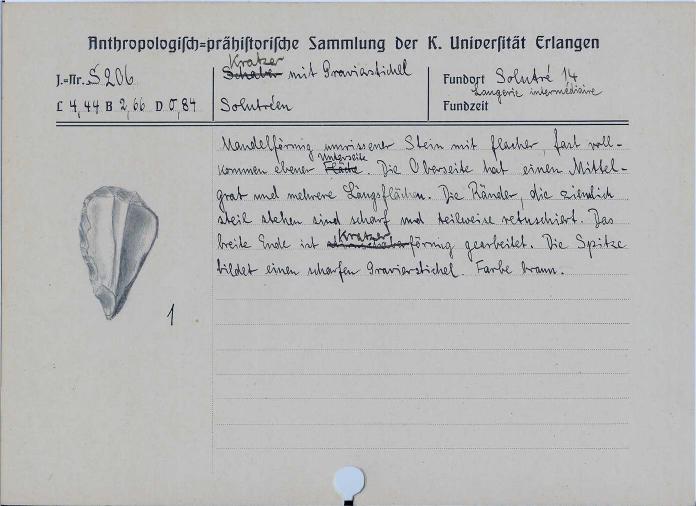 Anthropologisch=prähistorische Sammlung der K. Universität Erlangen
J.=Nr. S 206
L 4,44 B 2,66 D 0,84
Kratzer
Schaber mit Gravierstichel
Solutréen
Fundort Solutré 14
Langerie intermédiaire
Fundzeit
Mandelförmig umrissener Stein mit flacher, fast voll-
Unterseite
kommen ebener Fläche. Die Oberseite hat einen Mittel-
grat und mehrere Längsflächen. Die Ränder, die ziemlich
steil stehen sind scharf und teilweise retuschiert. Das
Kratzer
breite Ende ist förmig gearbeitet. Die Spitze
bildet einen scharfen Gravierstichel. Farbe braun.
1